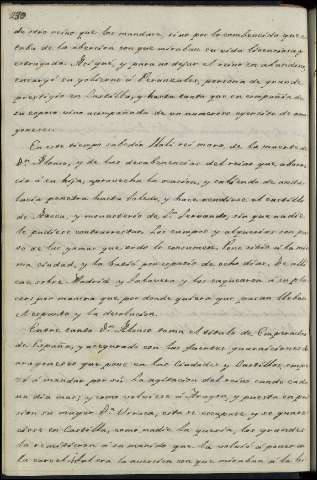 230
de otro reino que los mandara, sino por lo convencido que es-
taba de la aversion con que miraban su vida licenciosa y
estragada. Asi que, y para no dejar el reino en abandono,
encargó su gobierno á Peranzules, persona de grande
prestigio en Castilla, y hasta tanto que en compañia de
su esposa vino acompañado de un numeroso ejercito de ara-
goneses.
En este tiempo sabedor Hali rei moro, de la muerte de
Dn. Alonso, y de las del reino que
á su hija, aprovecha la ocasion, y saliendo de Anda-
lucia penetra hasta Toledo, y hace el castillo
de Aceca, y monasterio de Sn. Servando, sin que nadie
le pudiese contrarrestar. Los campos y alquerias son pas-
to de las llamas que todo lo consumen. Pone sitio á la mis-
ma ciudad, y la batió por espacio de ocho dias. De alli
cae sobre Madrid y Talavera y los
por manera que por donde quiera que pasan llevan
el espanto y la desolacion.
Entre tanto Dn. Alonso toma el titulo de Emperador
de España, y asegurado con las fuertes guarniciones de
aragoneses que puso en las Ciudades y Castillos, empe-
zó á mandar por si. La agitacion del reino cunde cada
dia mas; y como volviese á Aragon, y puesta en pri-
sion su muger Da. Urraca, esta se escapase y se guare-
ciese en Castilla, como nadie la queria, los grandes
la remitieron á su marido que la volvió á poner en
la carcel. Tal era la aversion con que miraban á la hi-